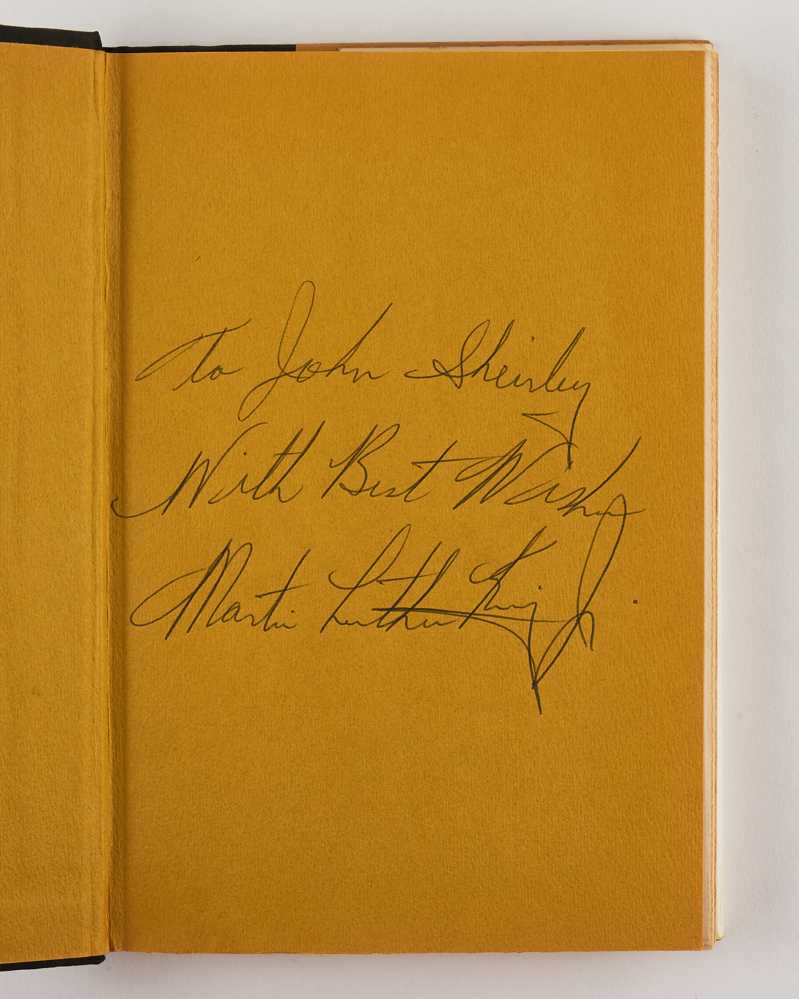 To John Sheirley
With Best Wishes
Martin Luther King Jr.